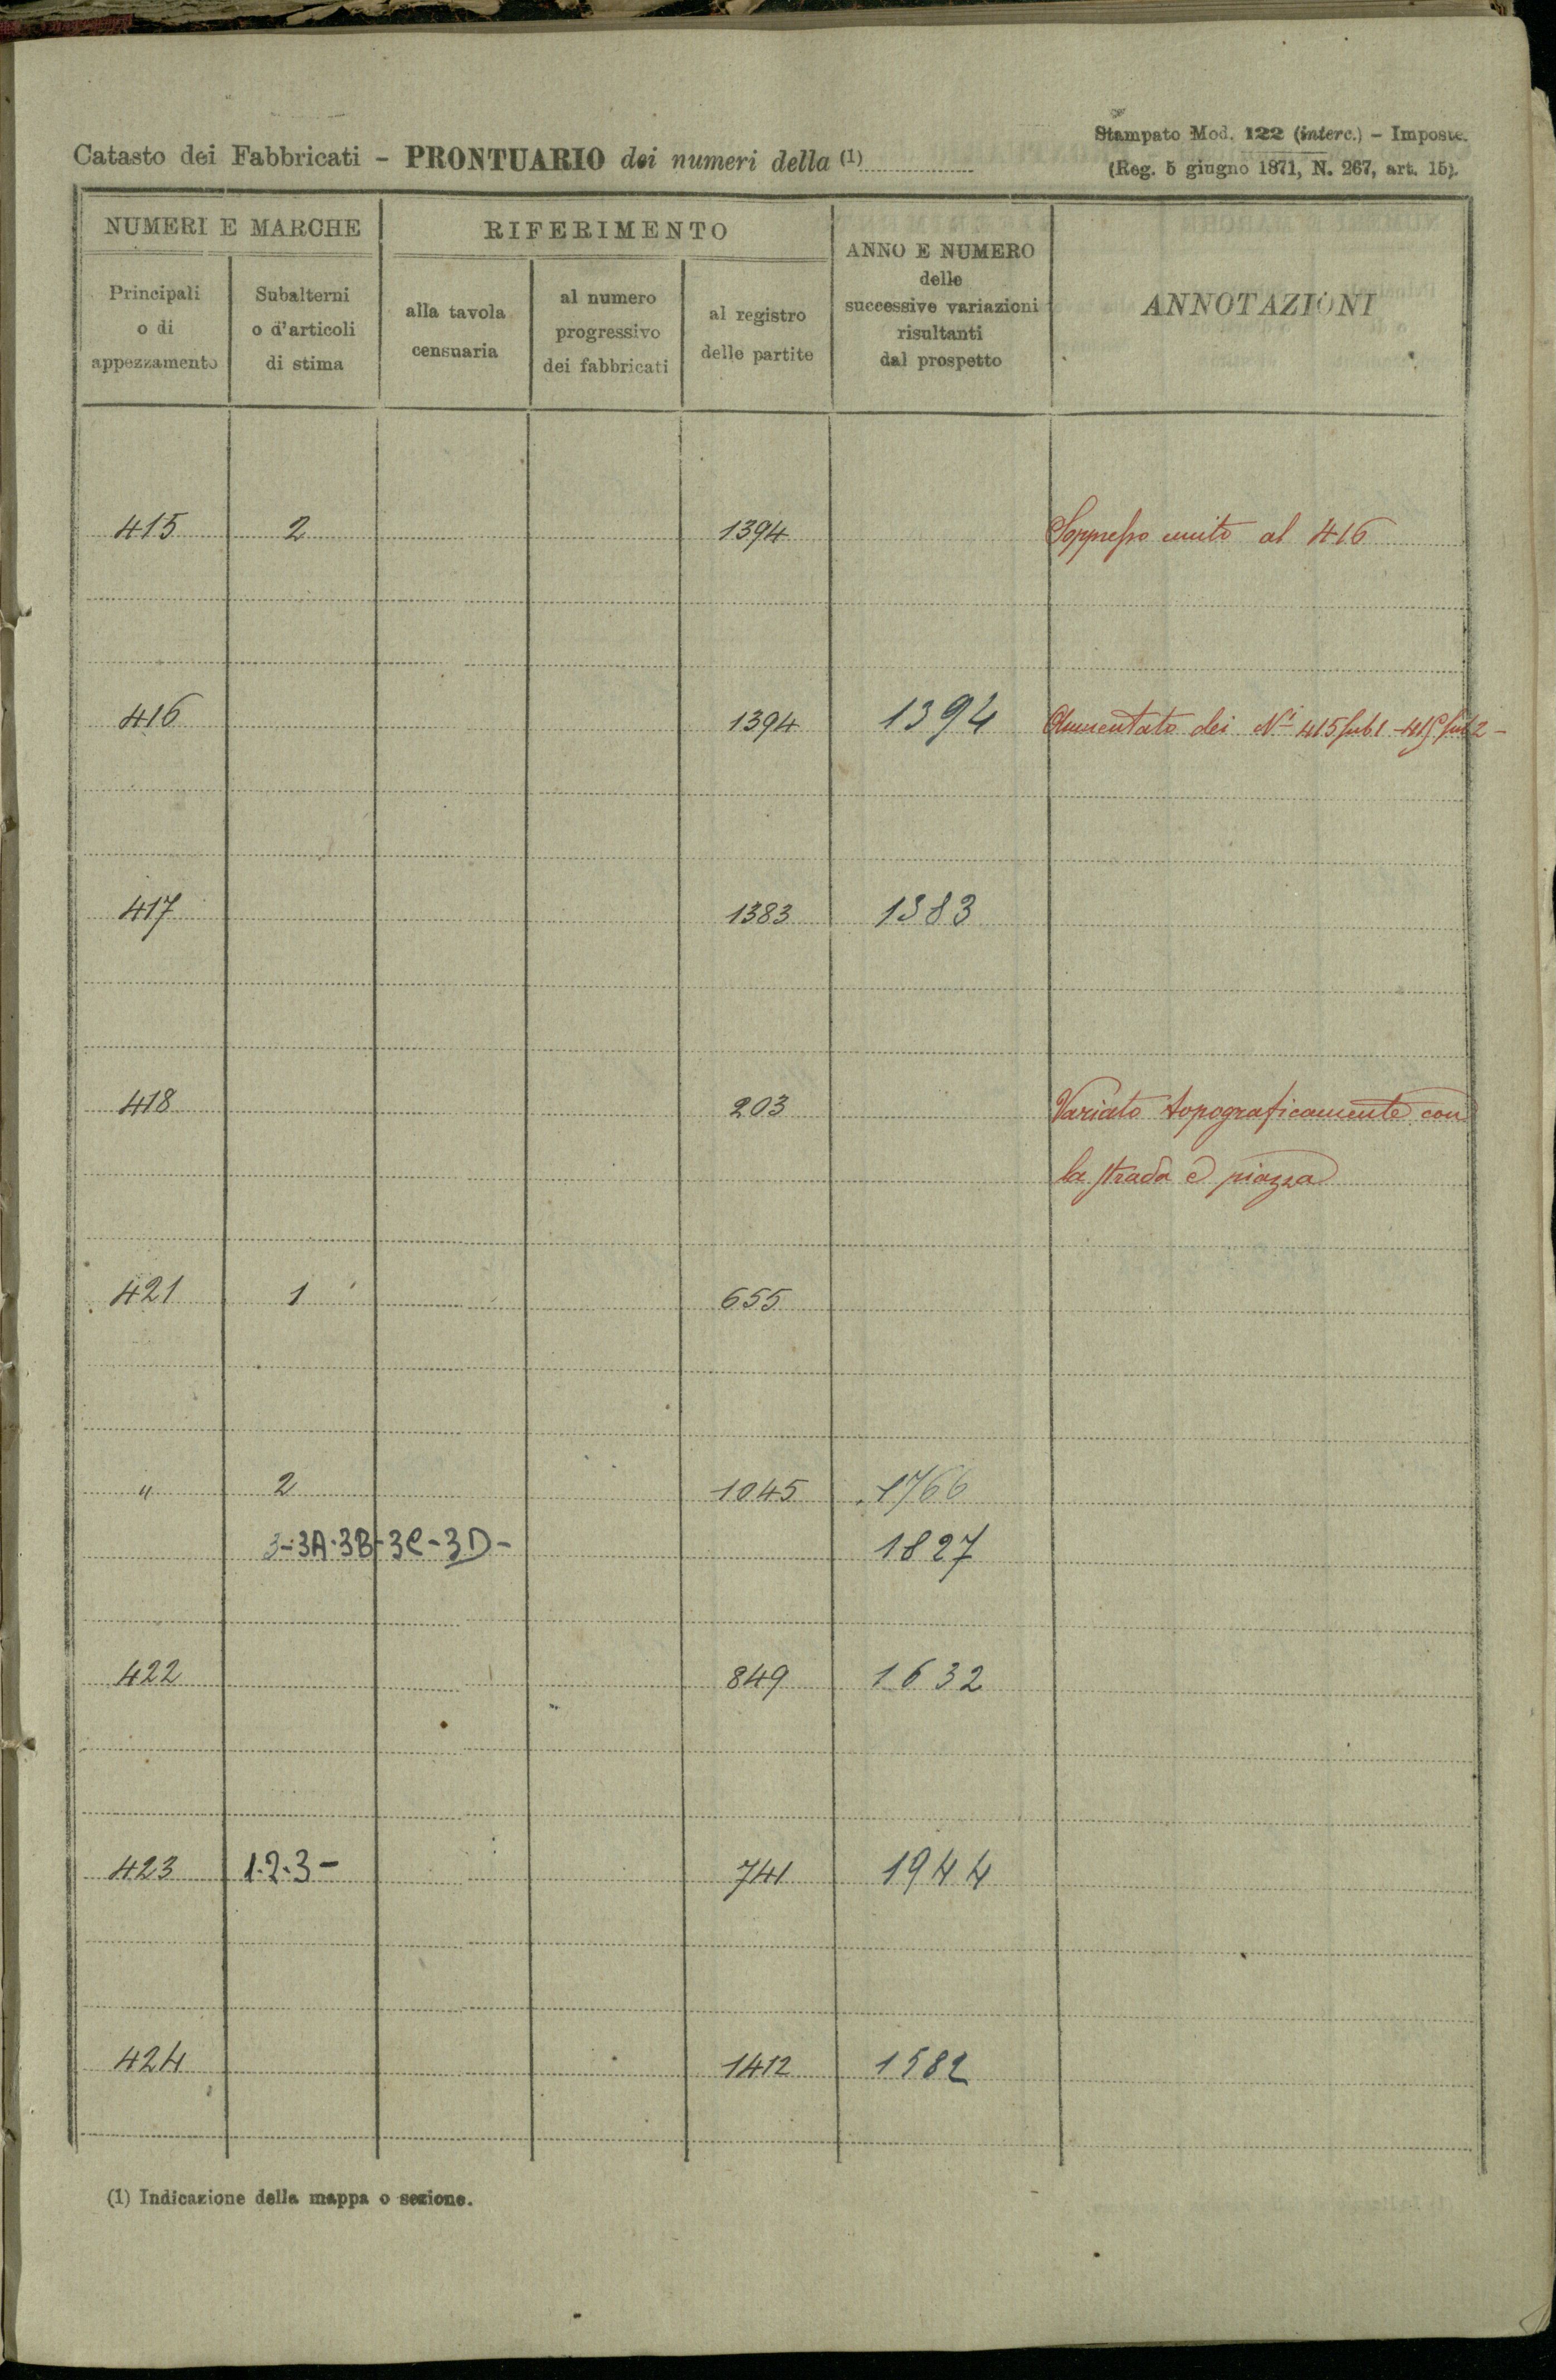 Stampato Mod. 122 (interc.) – Imposte.
Catasto dei Fabbricati – PRONTUARIO dei numeri della (1)
(Reg. 5 giugno 1871, N. 267, art. 15).
NUMERI E MARCHE
RIFERIMENTO
ANNO E NUMERO
delle
successive variazioni
risultanti
dal prospetto
ANNOTAZIONI
Principali
o di
appezzamento
Subalterni
o d'articoli
di stima
alla tavola
censuaria
al numero
progressivo
dei fabbricati
al registro
delle partite
415 2 1394 Soppresso unito al 416
416 1394 1394 Aumentato dei Ni 415 sub 1 - 415 sub 2 -
417 1383 1383
418 203 Variato topograficamente con
la strada e piazza
421 1 655
" 2 1045 1766
3-3A-3B-3C-3D- 1827
422 849 1632
423 1.2.3- 741 1944
424 1412 1582
(1) Indicazione della mappa o sezione.